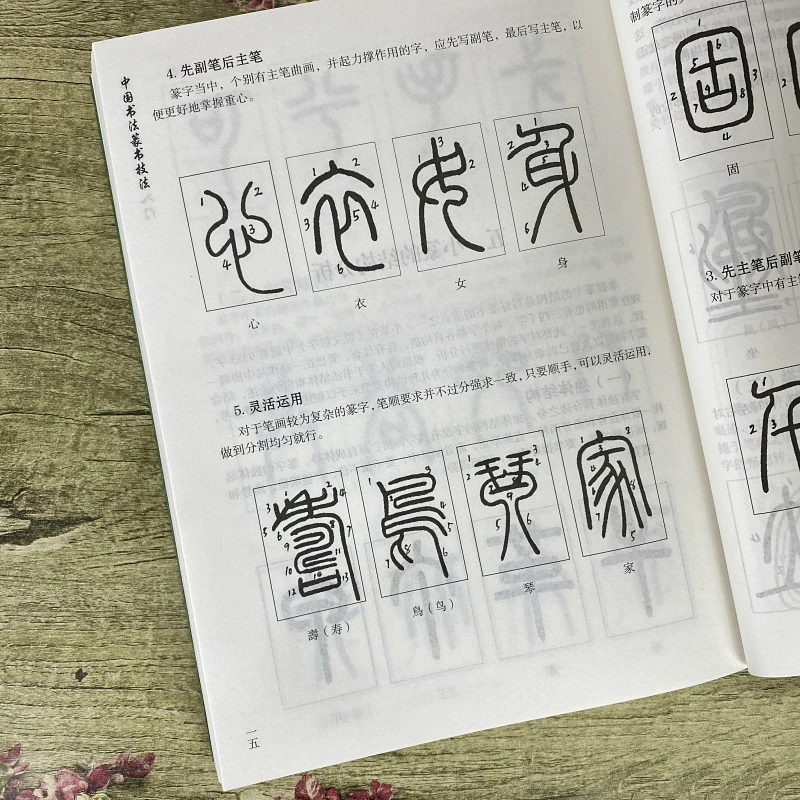 中国书法篆书技法
4. 先副笔后主笔
篆字当中，个别有主笔曲画，并起力撑作用的字，应先写副笔，最后写主笔，以
便更好地掌握重心。
心 衣 女 身
5. 灵活运用
对于笔画较为复杂的篆字，笔顺要求并不过分强求一致，只要顺手，可以灵活运用，
做到分割均匀就行。
壽（寿） 鳥（鸟） 琴 家
一五
固
3. 先主笔后副笔
对于篆字中有主